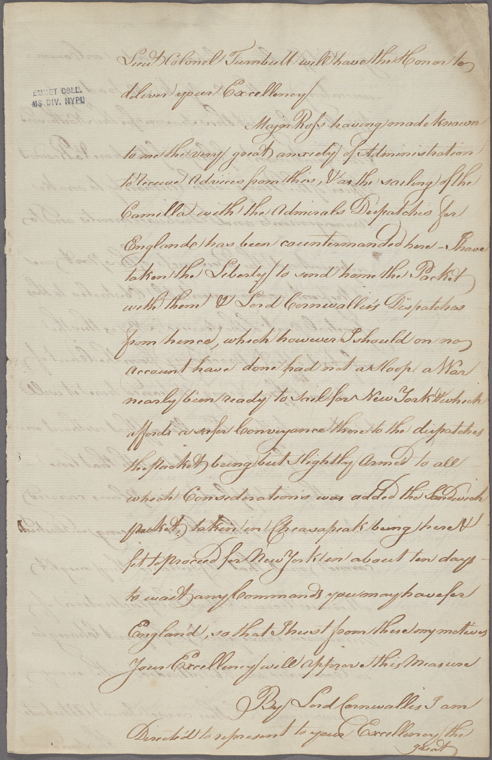 Lieut Colonel Turnbull will have the Honor to
deliver your Excellency
EMMET COLL.
MS. DIV. NYPL
Major Ross having made known
to me the very great anxiety of Administration
to receive Advices from this, & as the sailing of the
Camilla with the Admirals Dispatches for
England has been countermanded here - I have
taken the Liberty to send home the Packet
with them & Lord Cornwallis's Dispatches
from hence, which however I should on no
account have done had not a Sloop a War
nearly been ready to sail for New York & which
affords a safer Conveyance there to the dispatches
the packet being but slightly Armed to all
which Considerations was added the Sandwich
packet, taken in Cheasapeak being here &
fit to proceed for New York in about ten days -
to wait any Commands you may have for
England, so that I trust from these my motives
Your Excellency will approve this Measure
By Lord Cornwallis I am
Directed to represent to your Excellency the
great